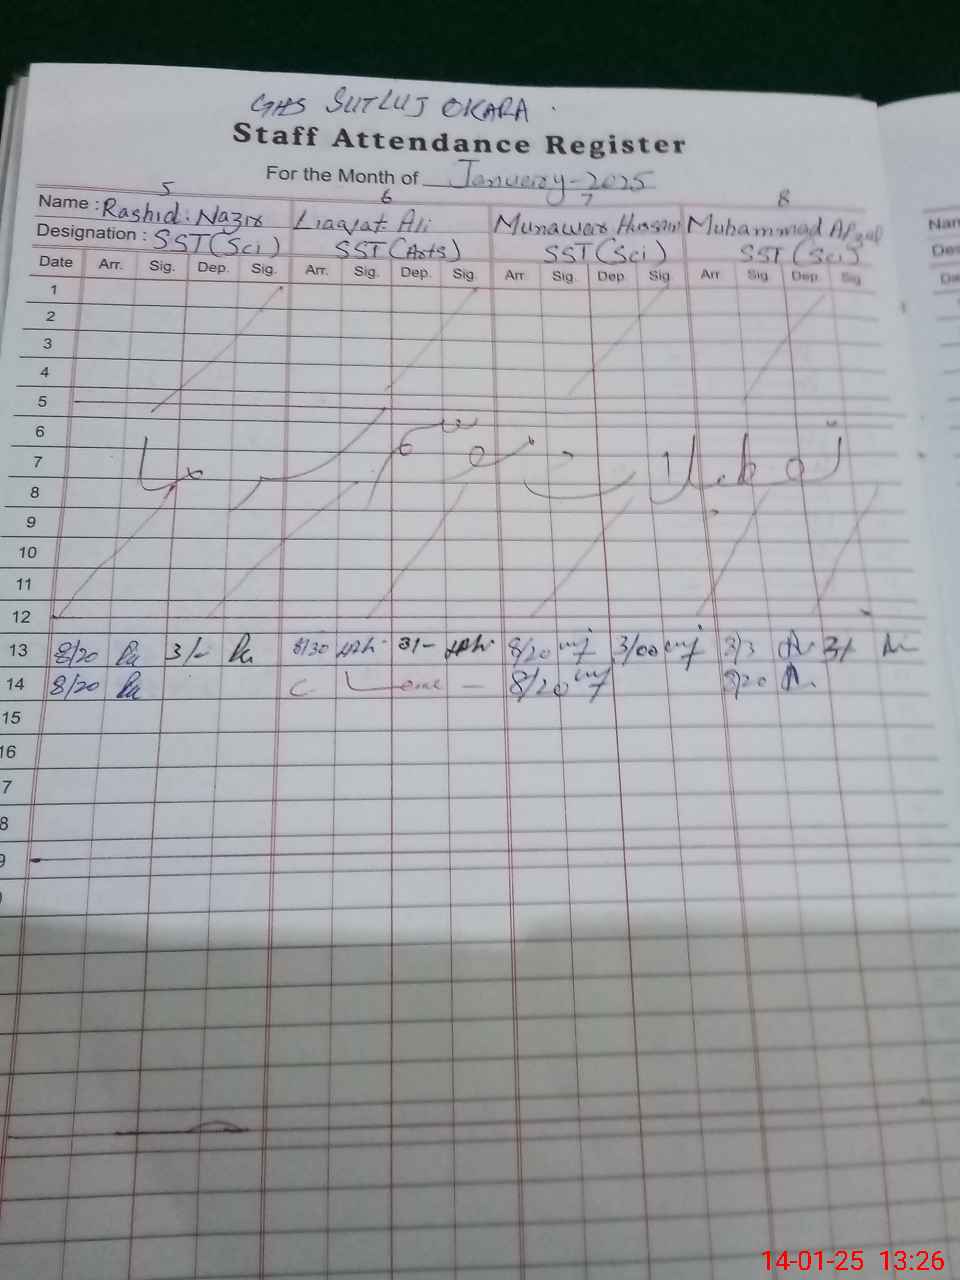 GHS SUTLUJ OKARA
Staff Attendance Register
For the Month of January-2025
5 6 7 8
Name : Rashid Nazir Liaqat Ali Munawar Hussain Muhammad Afzal
Designation : SST (Sci) SST (Arts) SST (Sci) SST (Sci)
Date Arr. Sig. Dep. Sig. Arr. Sig. Dep. Sig. Arr Sig. Dep. Sig. Arr Sig. Dep. Sig.
1
2
3
4
5
6
7
8
9
10
11
12
تعطیلات موسم سرما
13 8/20 3/- 8/30 3/- 8/20 3/00 3/
14 8/20 C. Leave 8/20 8/20
15
16
7
8
9
Nam
Des
Da
14-01-25 13:26